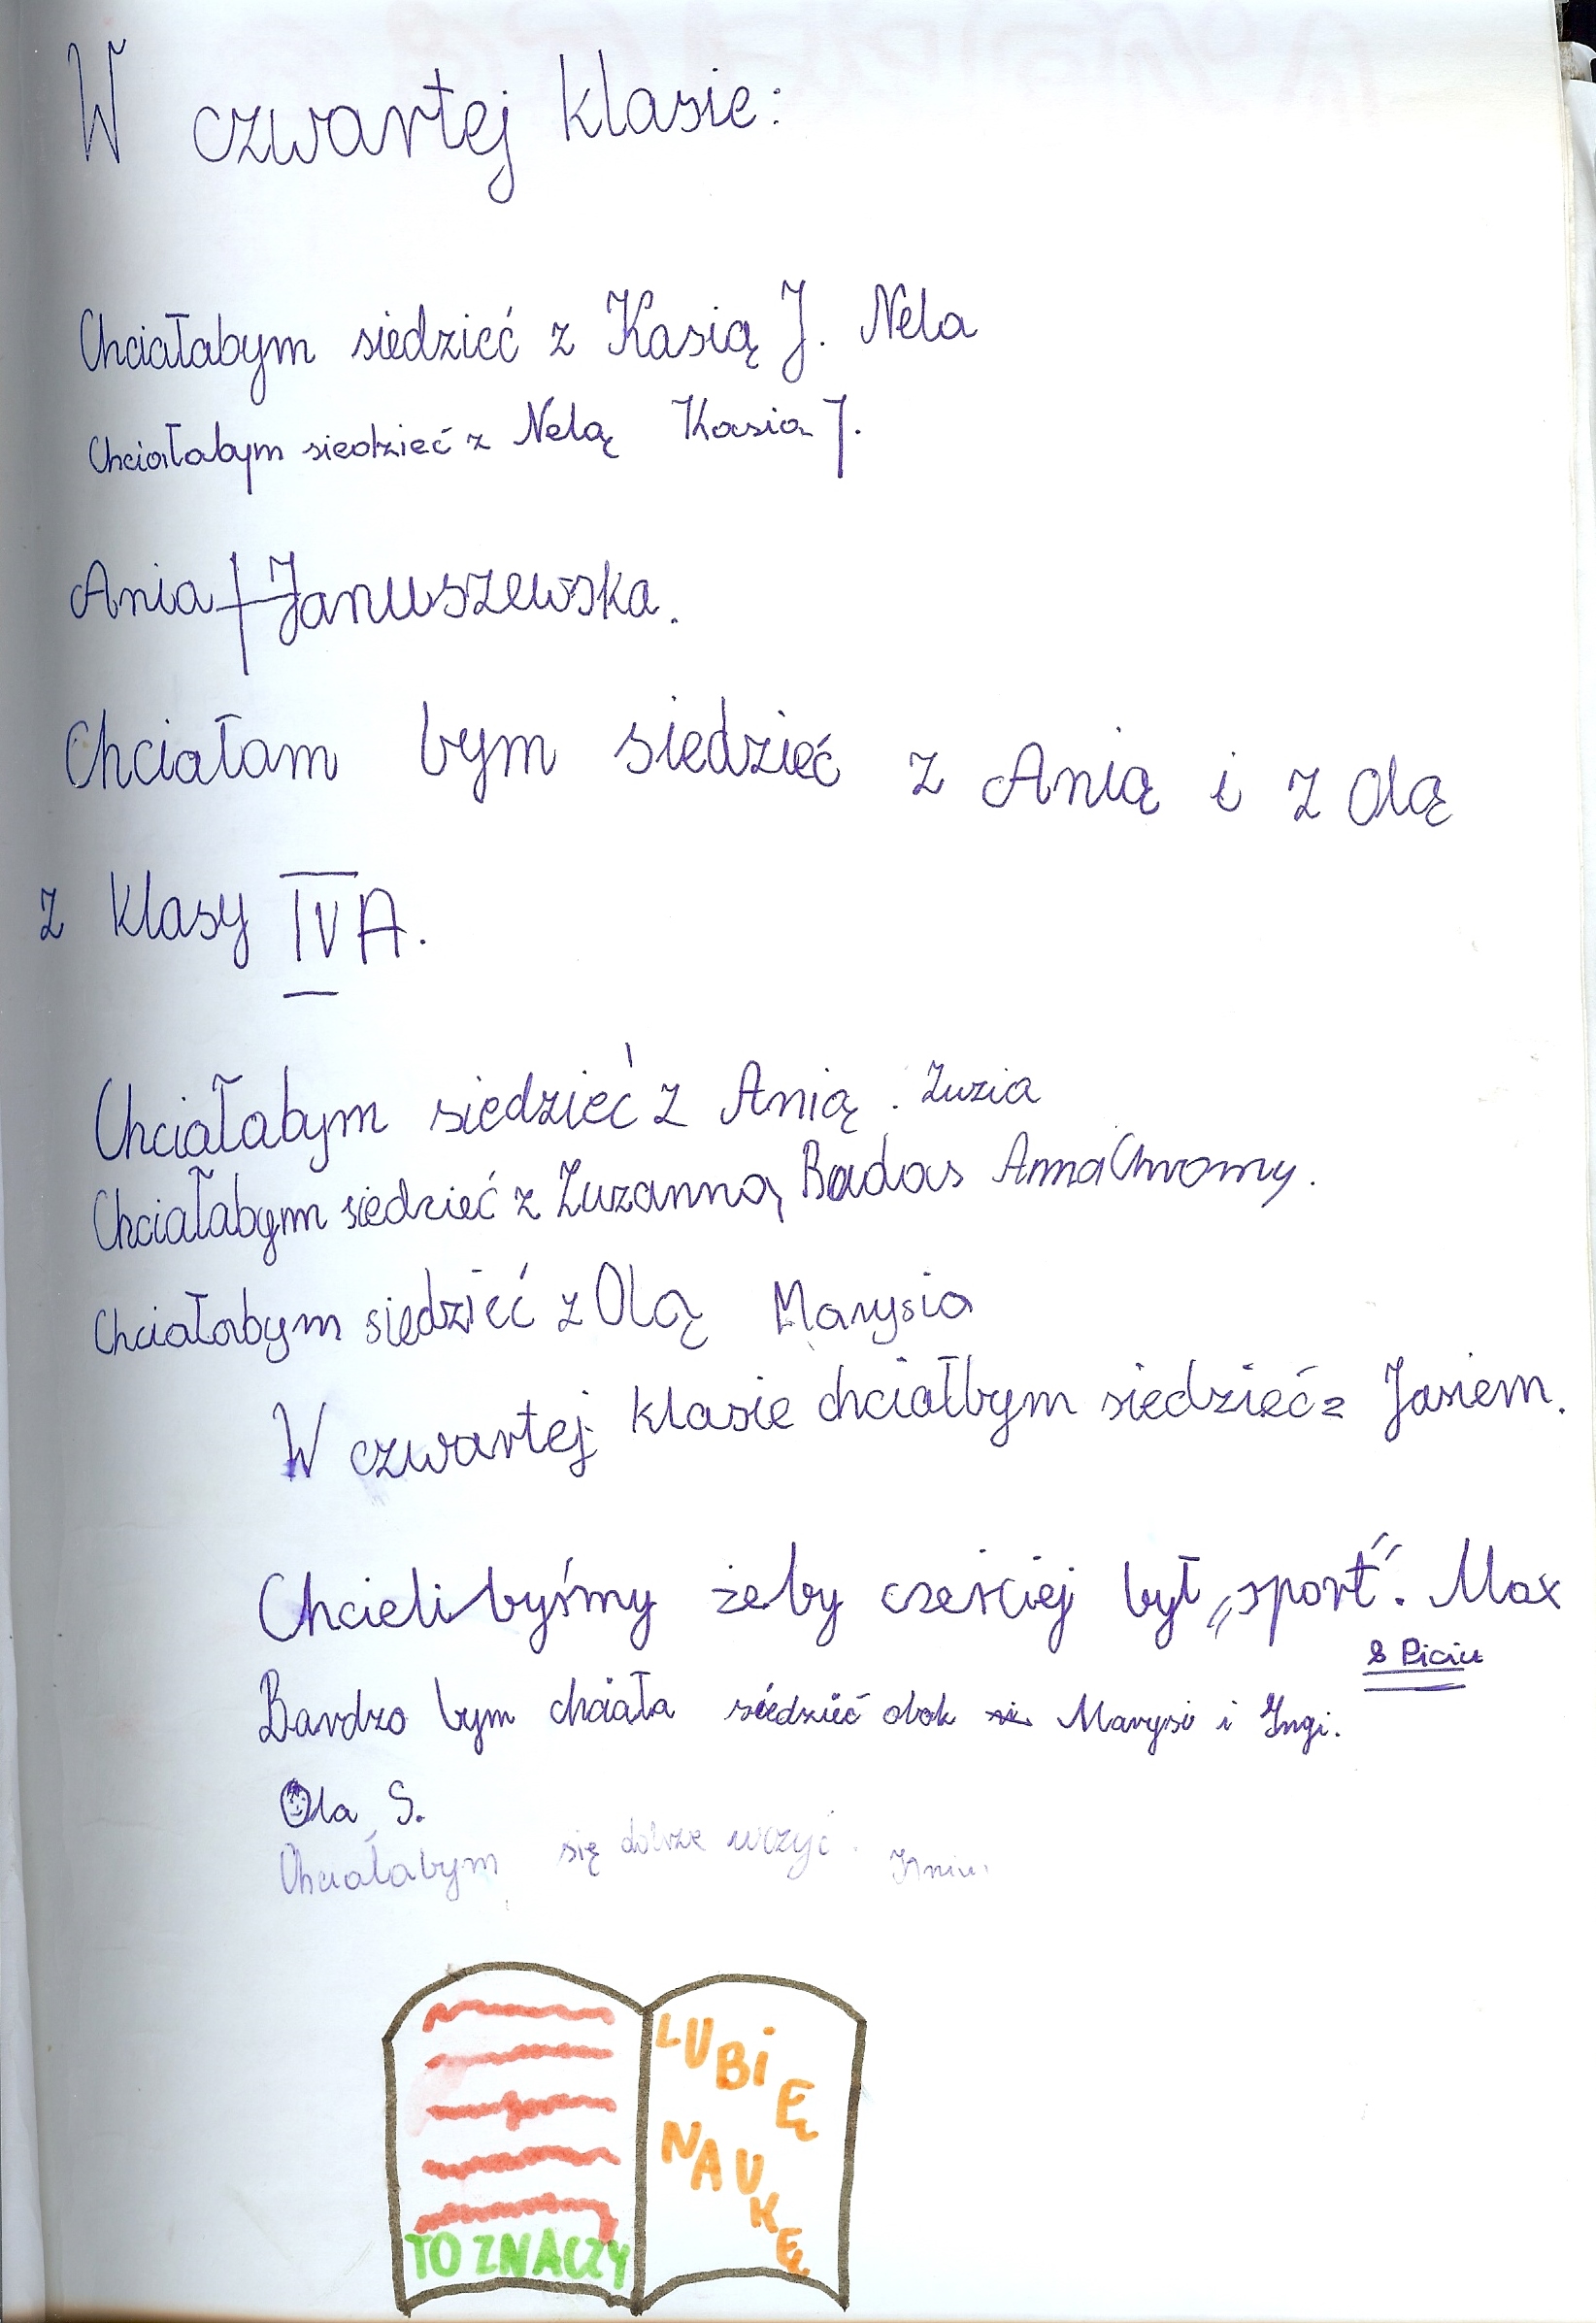 W czwartej klasie:
Chciałabym siedzieć z Kasią J. Nela
Chciałabym siedzieć z Nelą Kasia J.
Ania Januszewska.
Chciałam bym siedzieć z Anią i z Olą
z klasy IV A.
Chciałabym siedzieć z Anią. Zuzia
Chciałabym siedzieć z Zuzanną Badas Anna Chromy.
Chciałabym siedzieć z Olą Marysia
W czwartej klasie chciałbym siedzieć z Jasiem.
Chcieli byśmy żeby cześciej był „sport”. Max
& Piciu
Bardzo bym chciała siedzieć obok Marysi i Ingi.
Ola S.
Chciałabym się dobrze uczyć.
LUBIĘ
NAUKĘ
TO ZNACZY